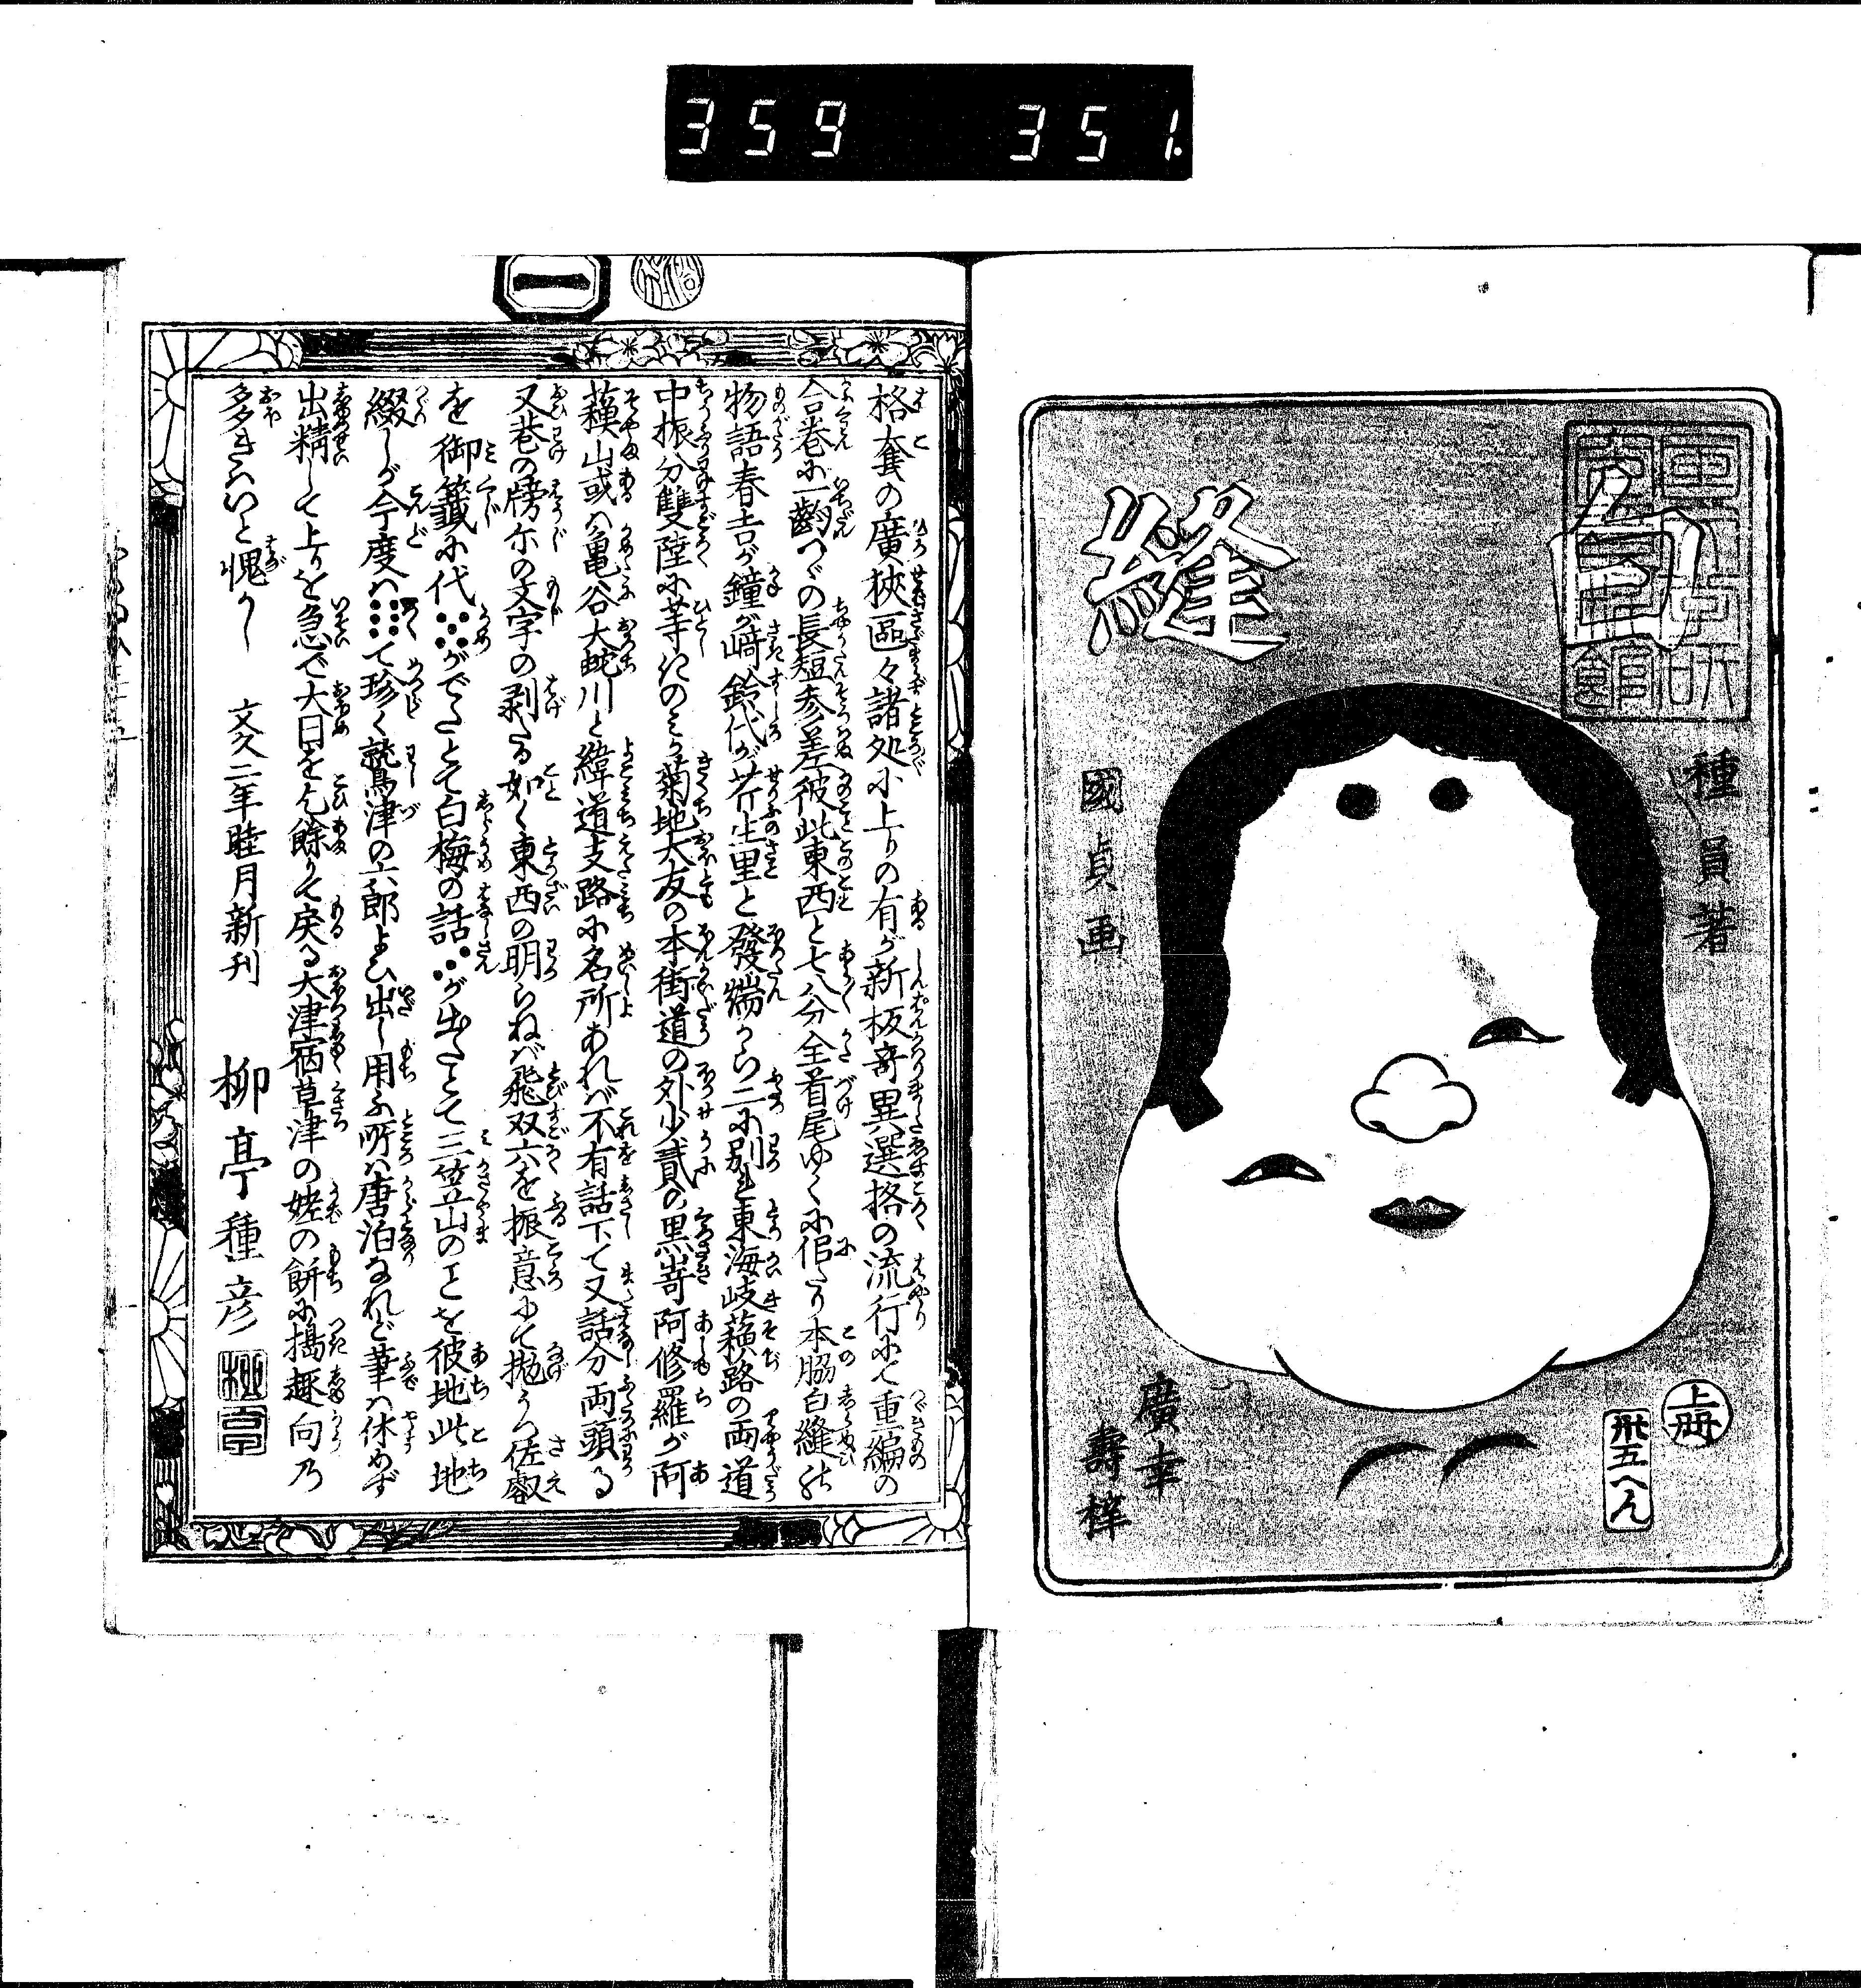 359 351.
白
縫
種員著
國貞画
上冊
卅五へん
廣幸
壽梓
一
格奩の廣狹區々諸処に上りの有が新板奇異選格の流行にて重編の
合巻に一齣づゝの長短参差彼此東西と七八分全首尾ゆくに佀たり本脇白縫の
物語春吉が鐘が﨑鈴代が芹生里と發端から二に別る東海岐蘓路の両道
中振分雙陸に等しきのミか菊地大友の本街道の外少貳の黒嵜阿修羅が阿
蘓山或ハ亀谷大蛇川と緯道支路に名所あれバ不有話下て又話分両頭る
又巷の牓尓の文字の剥たる如く東西の明らねバ飛双六を振意にて抛うつ佐叡
を御籤に代がでたとて白梅の話が出たとて三笠山のことを彼地此地
綴しが今度ハて珍く鷲津の六郎よび出し用ふ所ハ唐泊なれど筆ハ休めず
出精して上りを急で大日をも餘りて戻る大津宿草津の姥の餅に搗趣向乃
多きハいと愧かし
文久二年睦月新刊
柳亭種彦